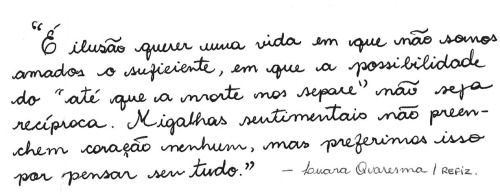 "É ilusão querer uma vida em que não somos
amados o suficiente, em que a possibilidade
do "até que a morte nos separe" não seja
recíproca. Migalhas sentimentais não preen-
chem coração nenhum, mas preferimos isso
por pensar ser tudo." - Luara Quaresma / REFIZ.